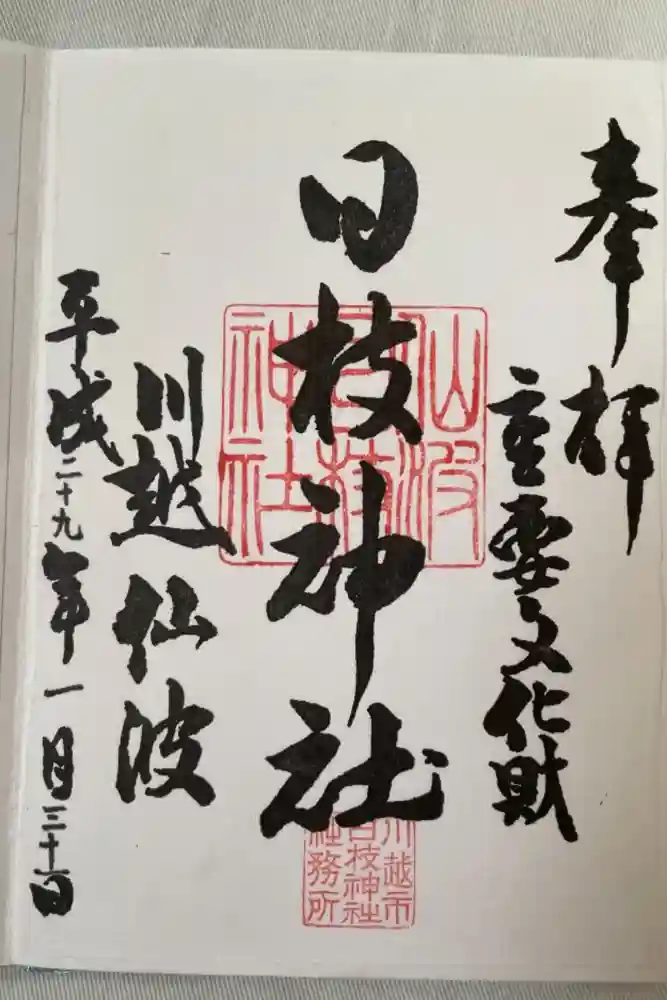 奉拝
重要文化財
日枝神社
川越仙波
平成二十九年一月三十一日
仙波
日枝
神社
川越市
日枝神社
社務所